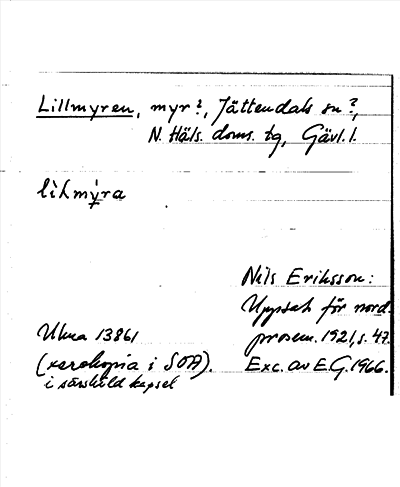 Lillmyren, myr?, Jättendals sn?,
N. Häls. doms. tg, Gävl. l.
Nils Eriksson:
Uppsats för nord.
prosem. 1921, s. 47.
Exc. av E.G. 1966.
Ulma 13861
(xerokopia i SOA).
i särskild kapsel